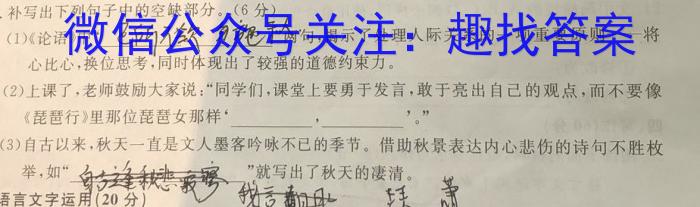 补写出下列句子中的空缺部分。(6分)
微信公众号关注：趣找答案
(1)《论语》 两句，揭示了处理人际关系的一项重要原则 将
心比心，换位思考，同时体现出了较强的道德约束力。
(2)上课了，老师鼓励大家说：“同学们，课堂上要勇于发言，敢于亮出自己的观点，而不要像
《琵琶行》里那位琵琶女那样‘ ， ’。”
(3)自古以来，秋天一直是文人墨客吟咏不已的季节。借助秋景表达内心悲伤的诗句不胜枚
举，如“自古逢秋悲寂寥 ”就写出了秋天的凄清。
语言文字运用(20分)